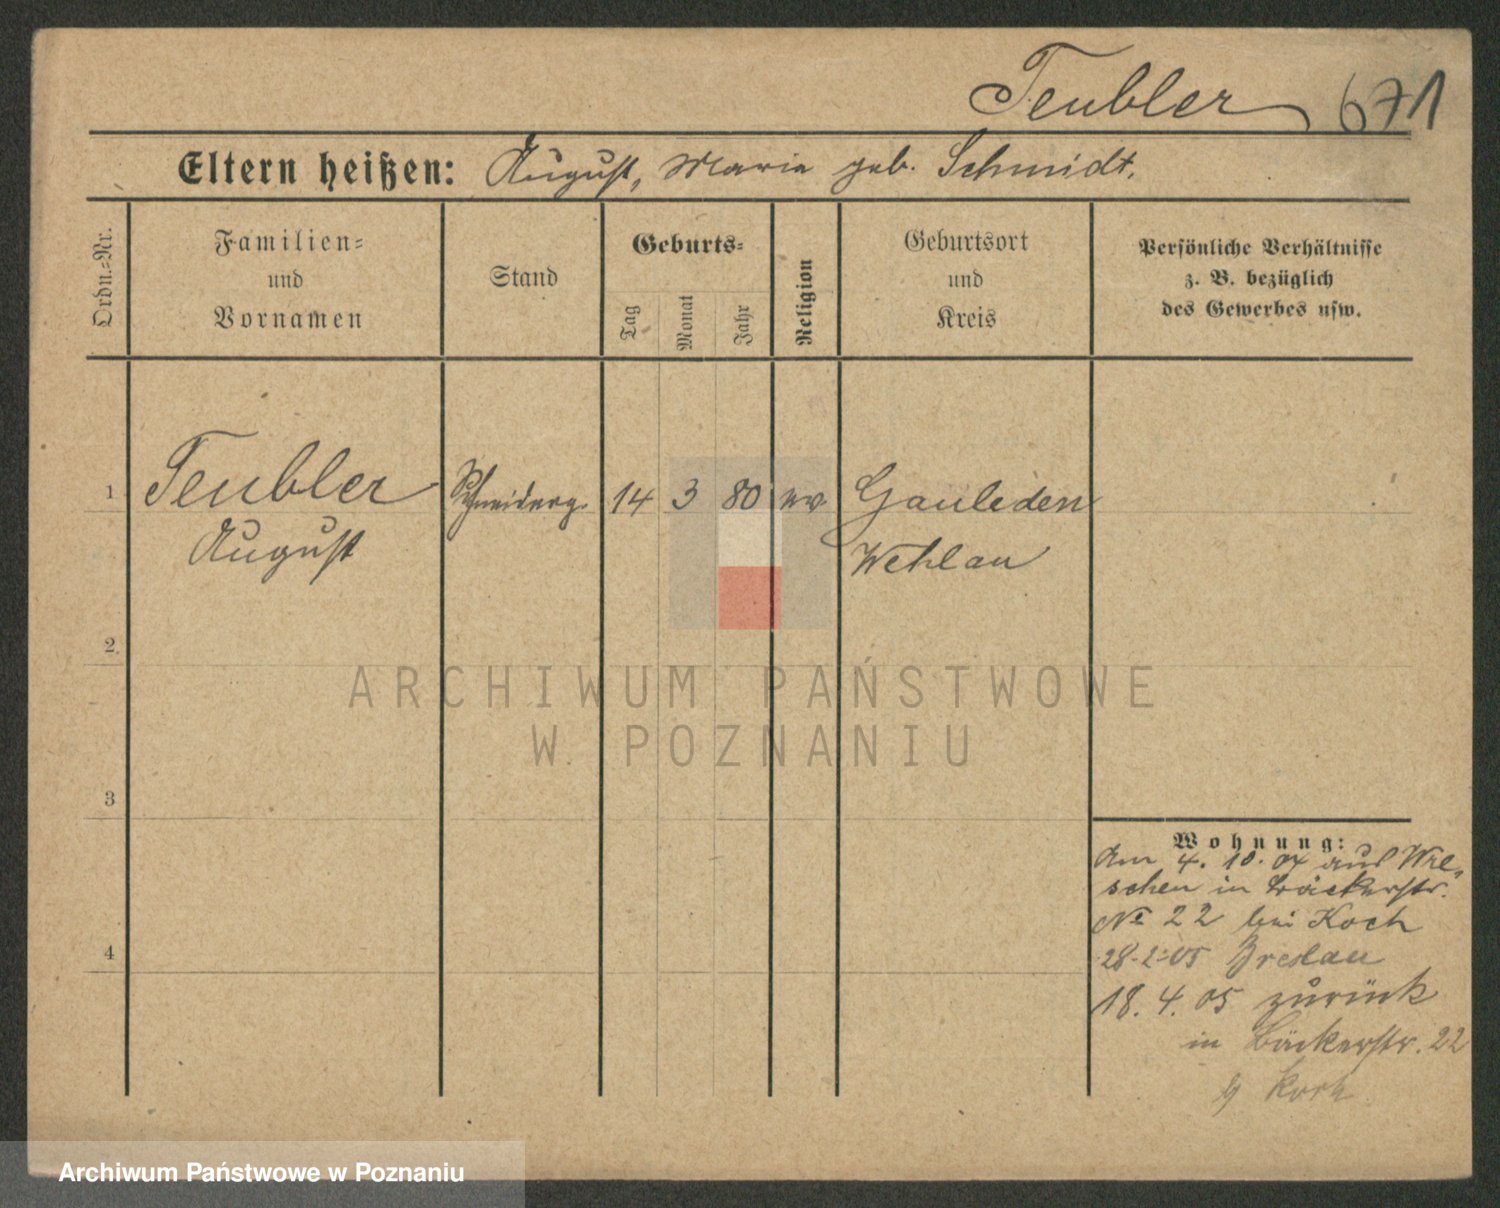 Teubler 671
Eltern heißen: August, Maria geb. Schmidt.
Ordn.=Nr.
Familien=
und
Vornamen
Stand
Geburts=
Tag
Monat
Jahr
Religion
Geburtsort
und
Kreis
Persönliche Verhältnisse
z. B. bezüglich
des Gewerbes usw.
1 Teubler Schneiderg. 14 3 80 ev Gauleden
August Wehlau
2
3
4
Wohnung:
Am 4. 10. 04 aus Wre-
schen in Bäckerstr.
No 22 bei Koch
28.2.05 Breslau
18. 4. 05 zurück
in Bäckerstr. 22
Koch
ARCHIWUM PAŃSTWOWE
W POZNANIU
Archiwum Państwowe w Poznaniu